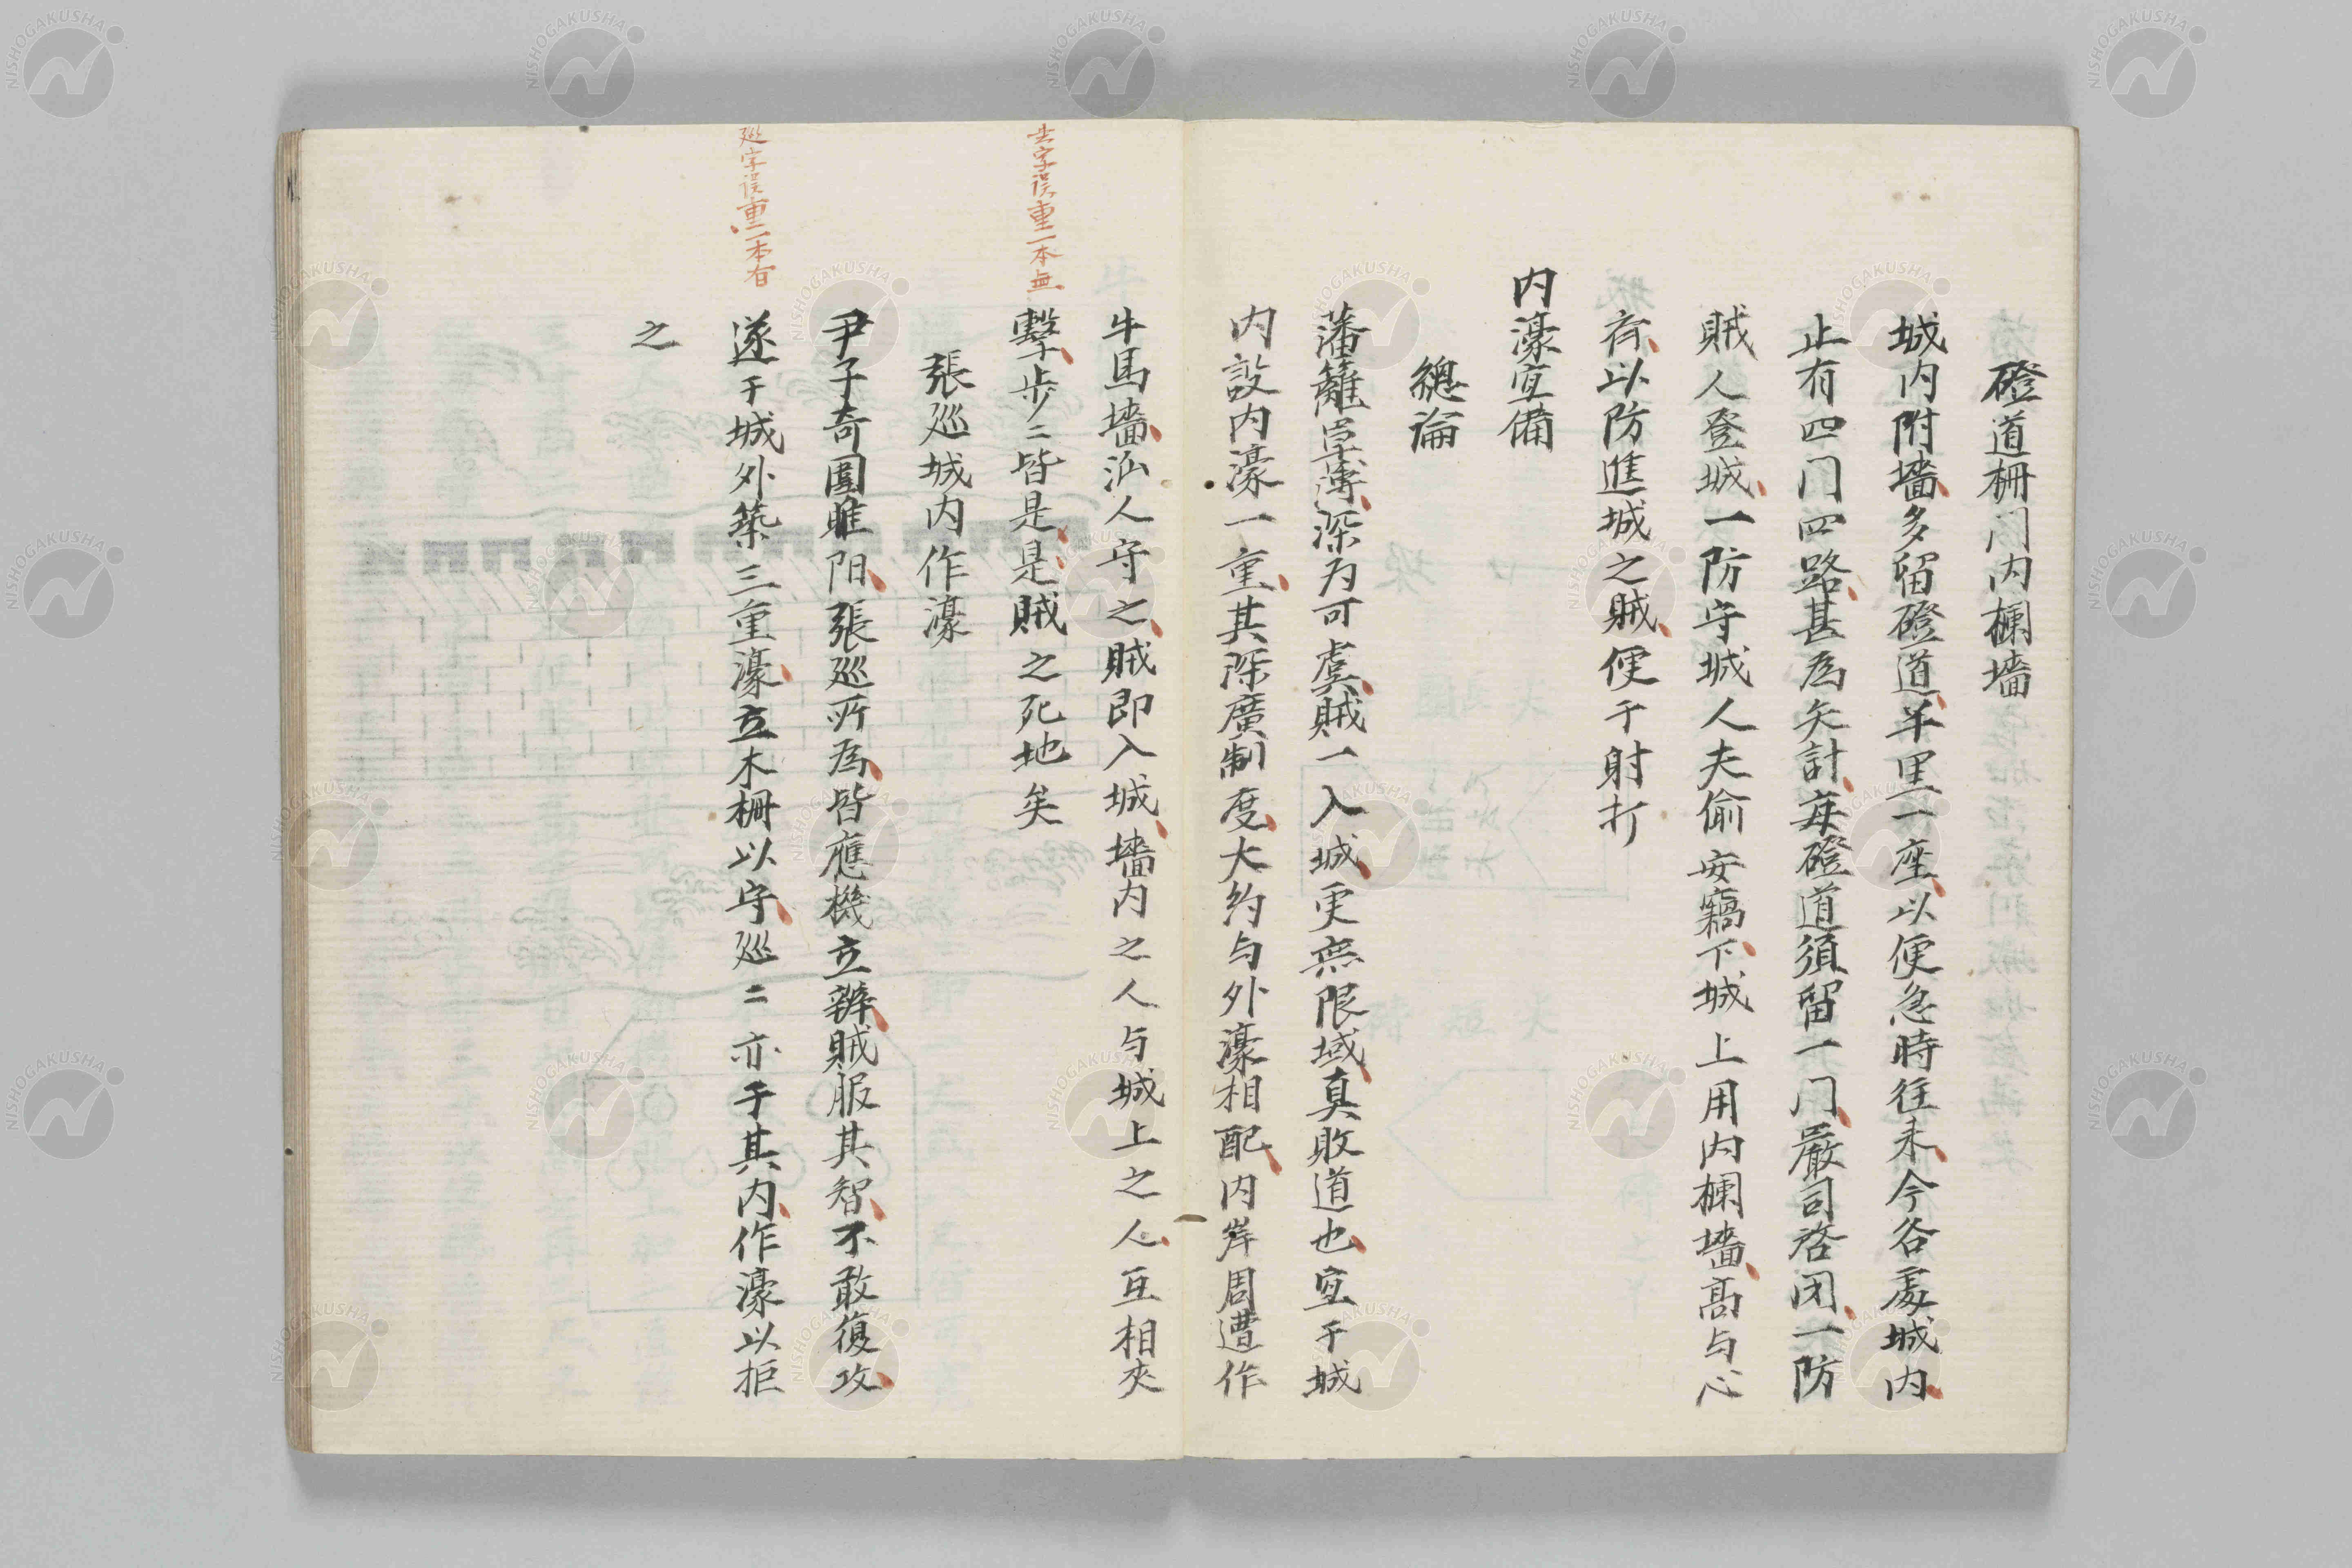 磴道柵门内欄墻
城内附墻多留磴道羊里一座以便急時往来今各處城内
止有四门四路甚為失計每磴道須留一门嚴司啓闭一防
賊人登城一防守城人夫偷安竊下城上用内欄墻髙与心
齐以防進城之賊便于射打
内濠宜備
總論
藩籬單薄深为可虞賊一入城更無限域真敗道也宜于城
内設内濠一重其深廣制度大約与外濠相配内岸周遭作
牛馬墻派人守之賊即入城墻内之人与城上之人互相夾
擊步二皆是是賊之死地矣
張巡城内作濠
尹子奇圍睢阳張巡所為皆應機立辦賊服其智不敢復攻
遂于城外築三重濠立木柵以守巡二亦于其内作濠以拒
之
是字誤重一本無
巡字誤重一本有
NISHOGAKUSHA